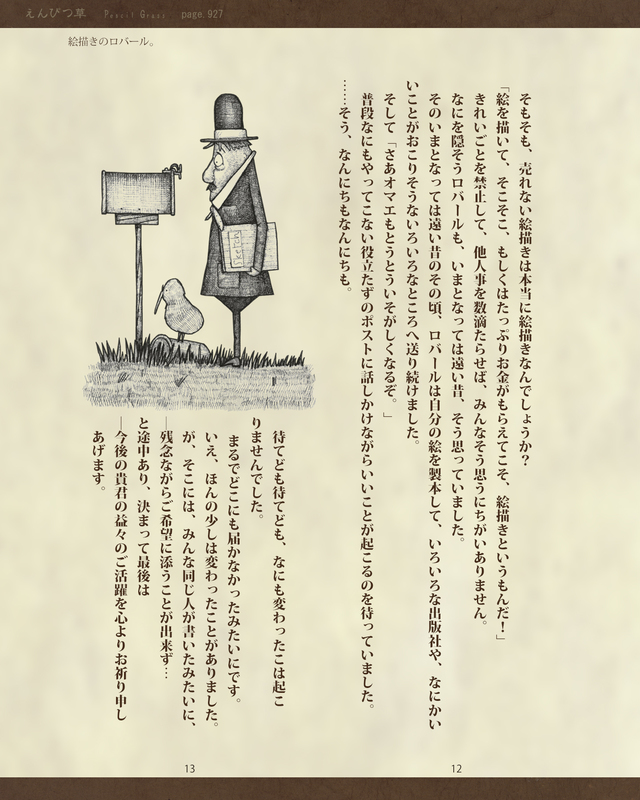 えんぴつ草 Pencil Grass page 927
絵描きのロバール。
そもそも、売れない絵描きは本当に絵描きなんでしょうか?
「絵を描いて、そこそこ、もしくはたっぷりお金がもらえてこそ、絵描きというもんだ!」
きれいごとを禁止して、他人事を数滴たらせば、みんなそう思うにちがいありません。
なにを隠そうロバールも、いまとなっては遠い昔、そう思っていました。
そのいまとなっては遠い昔のその頃、ロバールは自分の絵を製本して、いろいろな出版社や、なにかい
いことがおこりそうないろいろなところへ送り続けました。
そして「さあオマエもとうとういそがしくなるぞ。」
普段なにもやってこない役立たずのポストに話しかけながらいいことが起こるのを待っていました。
……そう、なんにちもなんにちも。
待てども待てども、なにも変わったこは起こ
りませんでした。
まるでどこにも届かなかったみたいにです。
いえ、ほんの少しは変わったことがありました。
が、そこには、みんな同じ人が書いたみたいに、
―残念ながらご希望に添うことが出来ず…
と途中あり、決まって最後は
―今後の貴君の益々のご活躍を心よりお祈り申し
あげます。
13
12